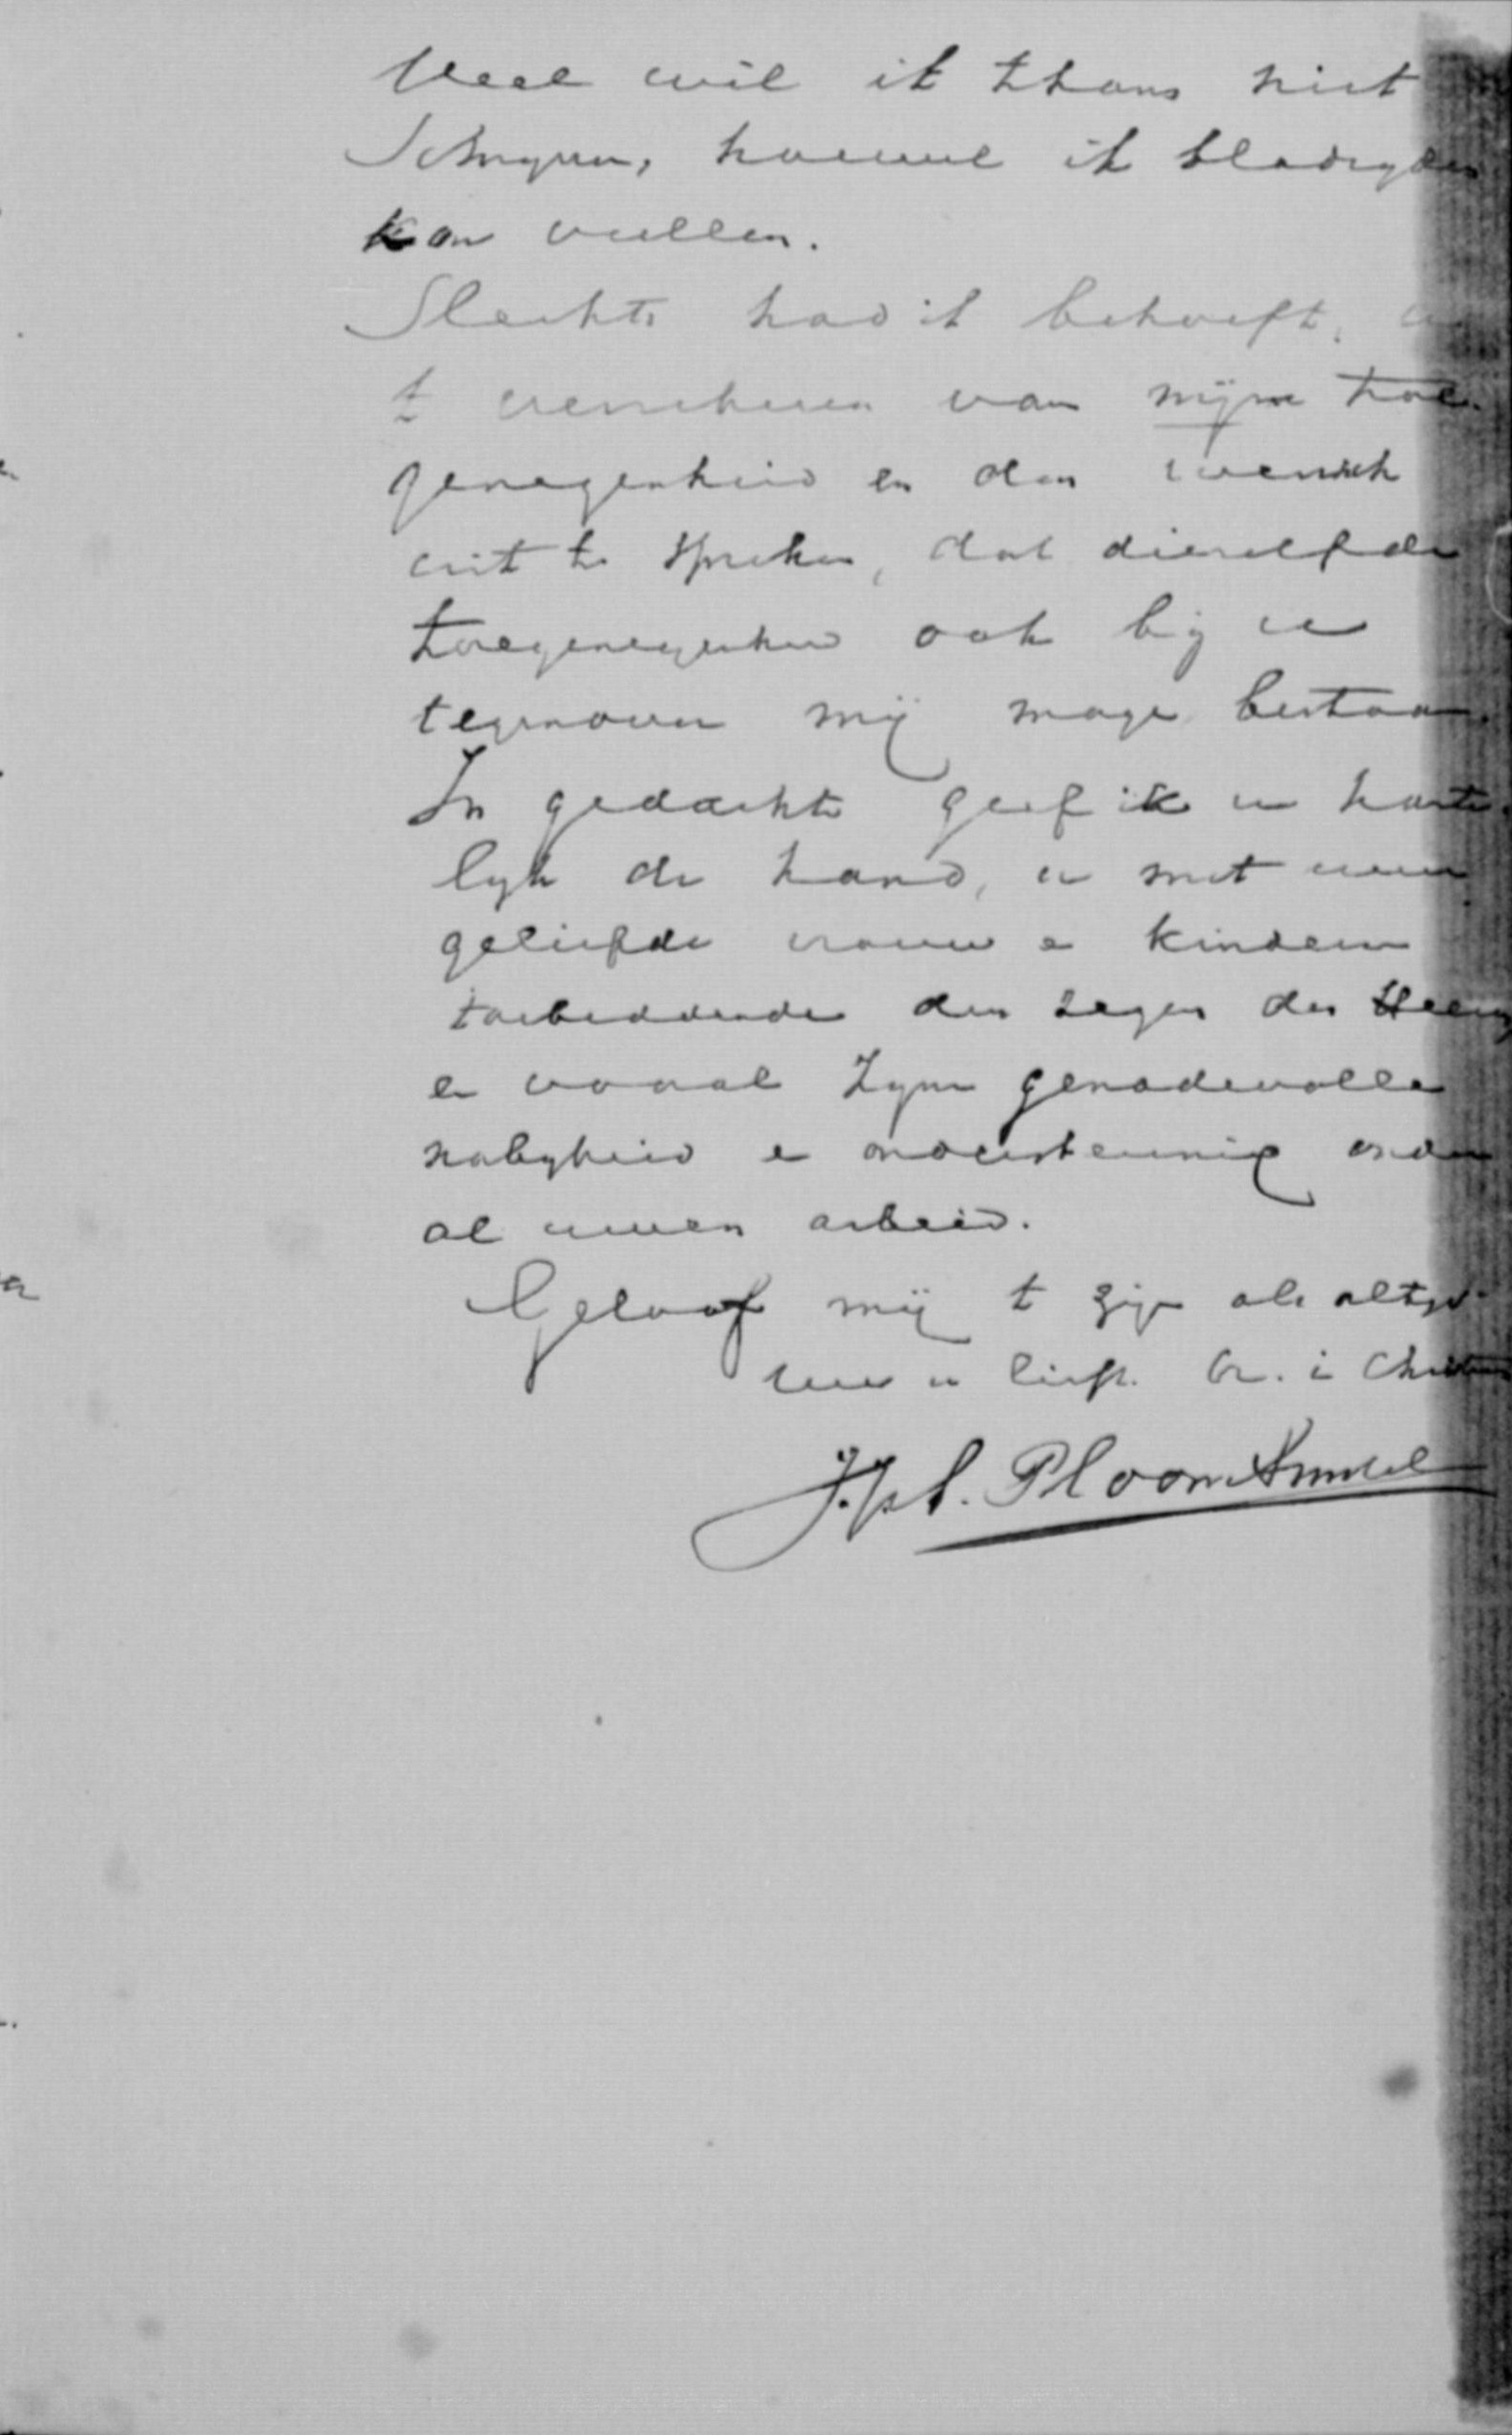 Veel wil ik thans niet
Schryven, hoewel ik bladzyden
kan vullen.
Slechts had ik behoefte, u
te verzekeren van mijne toe-
genegenheid en den wensch
uit te spreken, dat diezelfde
toegenegenheid ook bij u
tegenover mij moge bestaan.
In gedachte geef ik u harte
lyk de hand, u met uwe
geliefde vrouw en kinderen
toebiddende den zegen des Heeren
en vooral Zyne genadevolle
nabyheid en ondersteuning onder
al uwen arbeid.
Geloof mij te zijn als altyd
uw u liefh. br. in Christus